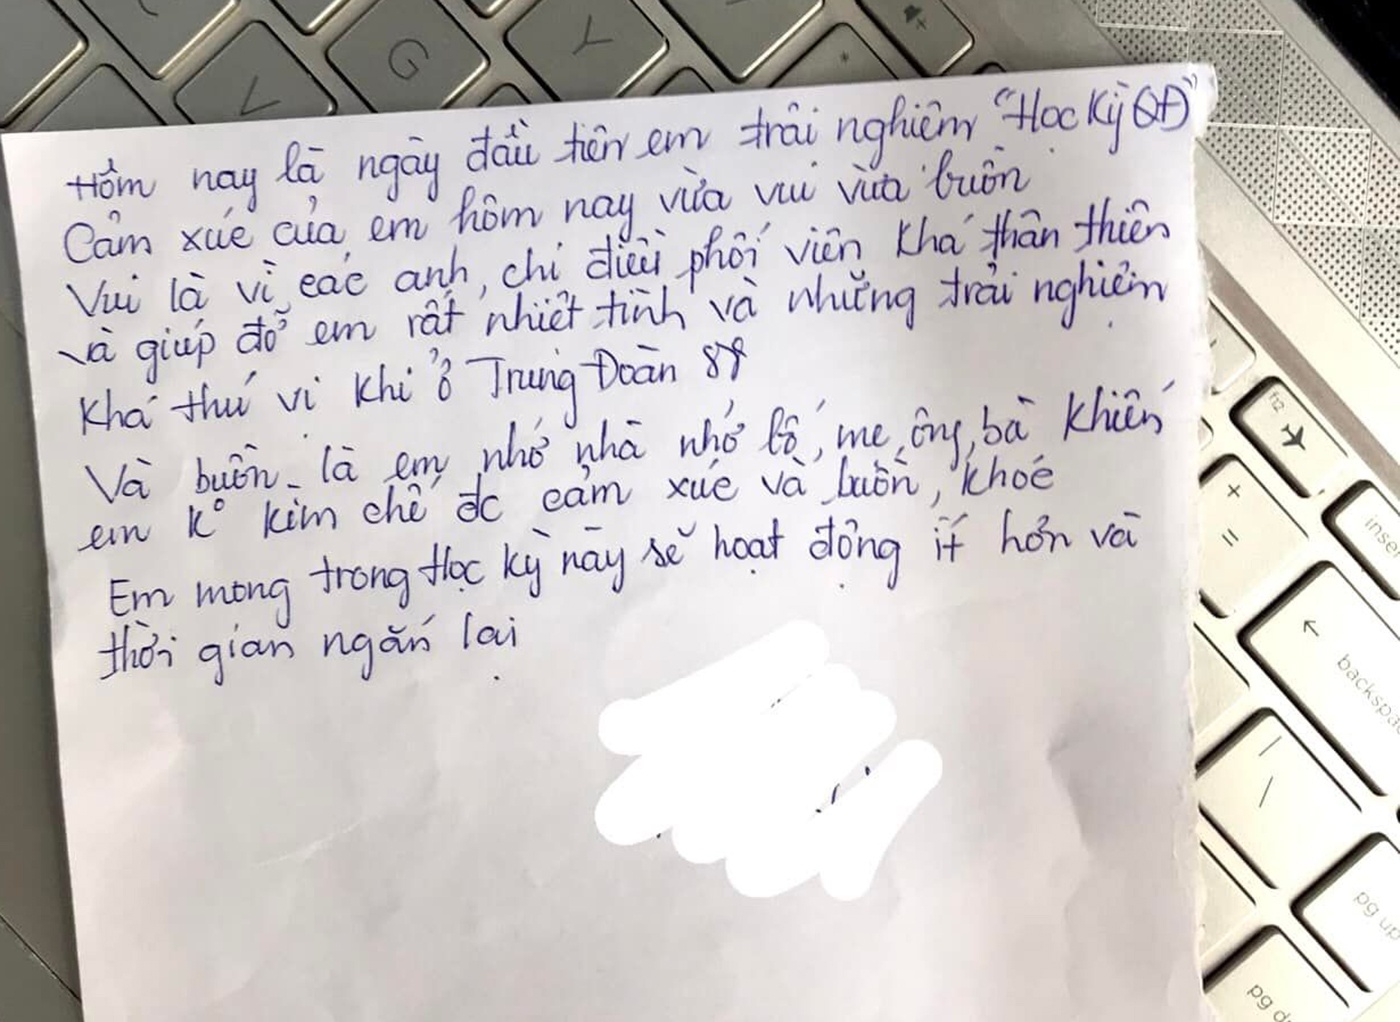 V
G
Y
*
Hôm nay là ngày đầu tiên em trải nghiệm "Học Kỳ QĐ"
Cảm xúc của em hôm nay vừa vui vừa buồn
Vui là vì các anh, chị điều phối viên khá thân thiện
và giúp đỡ em rất nhiệt tình và những trải nghiệm
khá thú vị khi ở Trung Đoàn 88
Và buồn là em nhớ nhà nhớ bố, mẹ, ông, bà khiến
em ko kìm chế đc cảm xúc và buồn, khóc
Em mong trong Học kỳ này sẽ hoạt động ít hơn và
thời gian ngắn lại
f12
+
=
inser
backspa
|
\
pg up
pg d